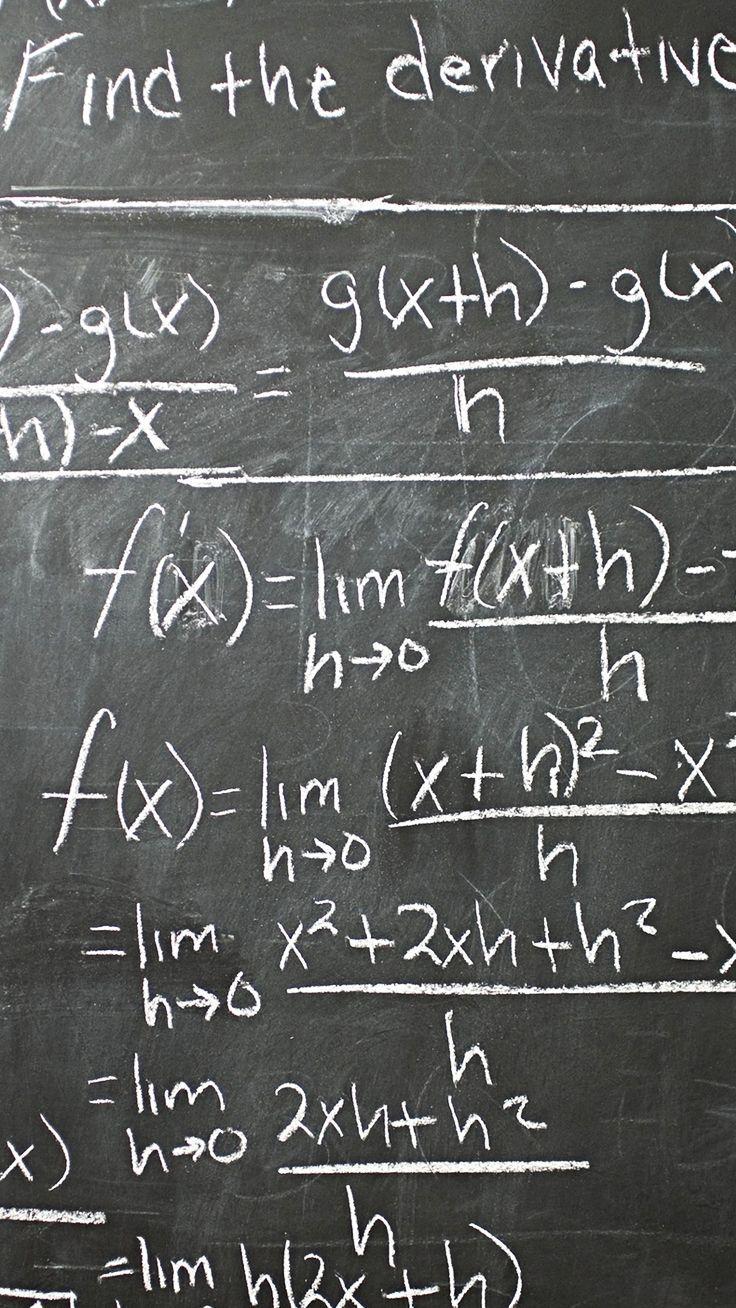 Find the derivative
) - g(x) / h) - x = g(x+h) - g(x / h
f'(x) = lim h→0 f(x+h) - / h
f(x) = lim h→0 (x+h)² - x² / h
= lim h→0 x² + 2xh + h² - x / h
= lim h→0 2xh + h² / h
x)
= lim h(2x + h)